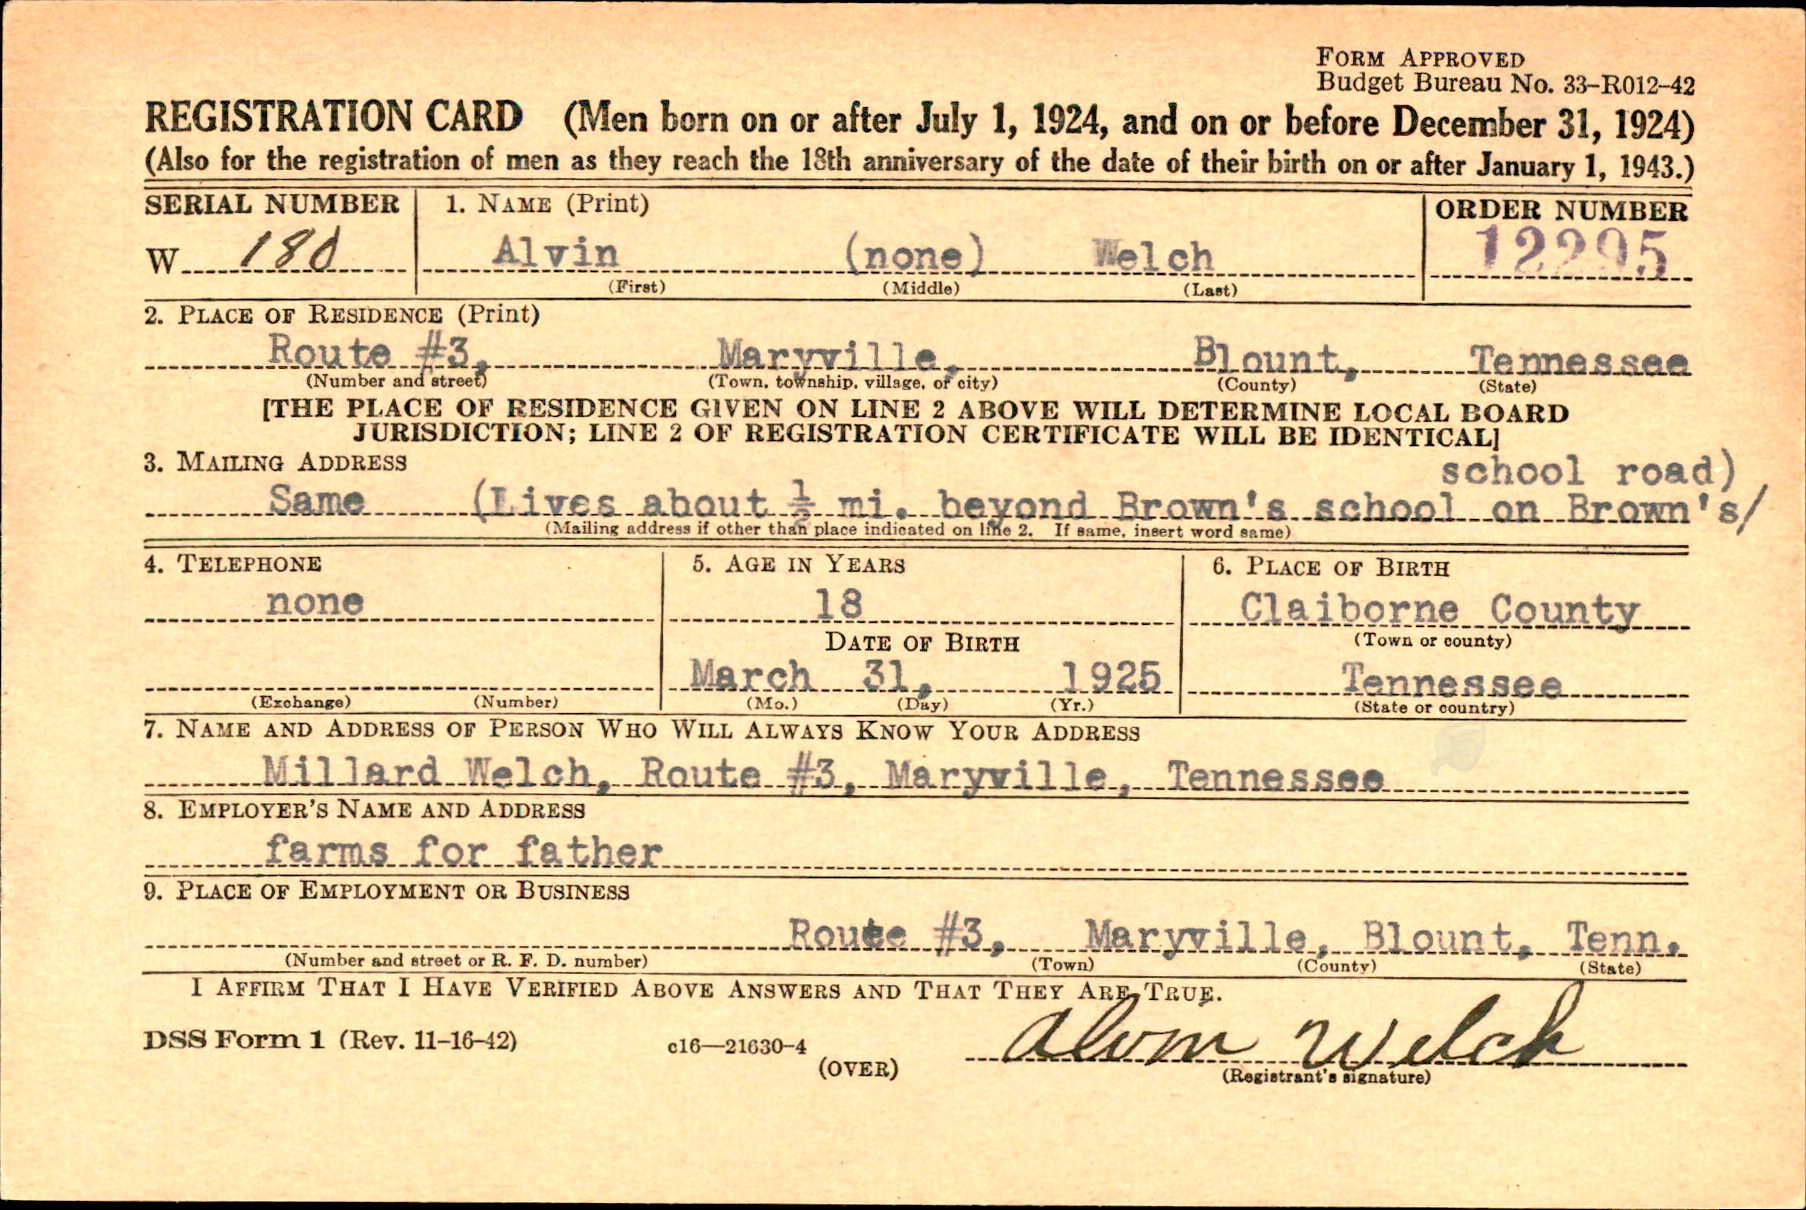 FORM APPROVED
Budget Bureau No. 33-R012-42
REGISTRATION CARD (Men born on or after July 1, 1924, and on or before December 31, 1924)
(Also for the registration of men as they reach the 18th anniversary of the date of their birth on or after January 1, 1943.)
SERIAL NUMBER 1. NAME (Print) ORDER NUMBER
W 180 Alvin (none) Welch 12295
(First) (Middle) (Last)
2. PLACE OF RESIDENCE (Print)
Route #3, Maryville, Blount, Tennessee
(Number and street) (Town, township, village, or city) (County) (State)
[THE PLACE OF RESIDENCE GIVEN ON LINE 2 ABOVE WILL DETERMINE LOCAL BOARD
JURISDICTION; LINE 2 OF REGISTRATION CERTIFICATE WILL BE IDENTICAL]
3. MAILING ADDRESS school road)
Same (Lives about ½ mi. beyond Brown's school on Brown's/
(Mailing address if other than place indicated on line 2. If same, insert word same)
4. TELEPHONE 5. AGE IN YEARS 6. PLACE OF BIRTH
none 18 Claiborne County
DATE OF BIRTH (Town or county)
March 31, 1925 Tennessee
(Exchange) (Number) (Mo.) (Day) (Yr.) (State or country)
7. NAME AND ADDRESS OF PERSON WHO WILL ALWAYS KNOW YOUR ADDRESS
Millard Welch, Route #3, Maryville, Tennessee
8. EMPLOYER'S NAME AND ADDRESS
farms for father
9. PLACE OF EMPLOYMENT OR BUSINESS
Route #3, Maryville, Blount, Tenn.
(Number and street or R. F. D. number) (Town) (County) (State)
I AFFIRM THAT I HAVE VERIFIED ABOVE ANSWERS AND THAT THEY ARE TRUE.
DSS Form 1 (Rev. 11-16-42) c16—21630-4 (OVER) Alvin Welch
(Registrant's signature)